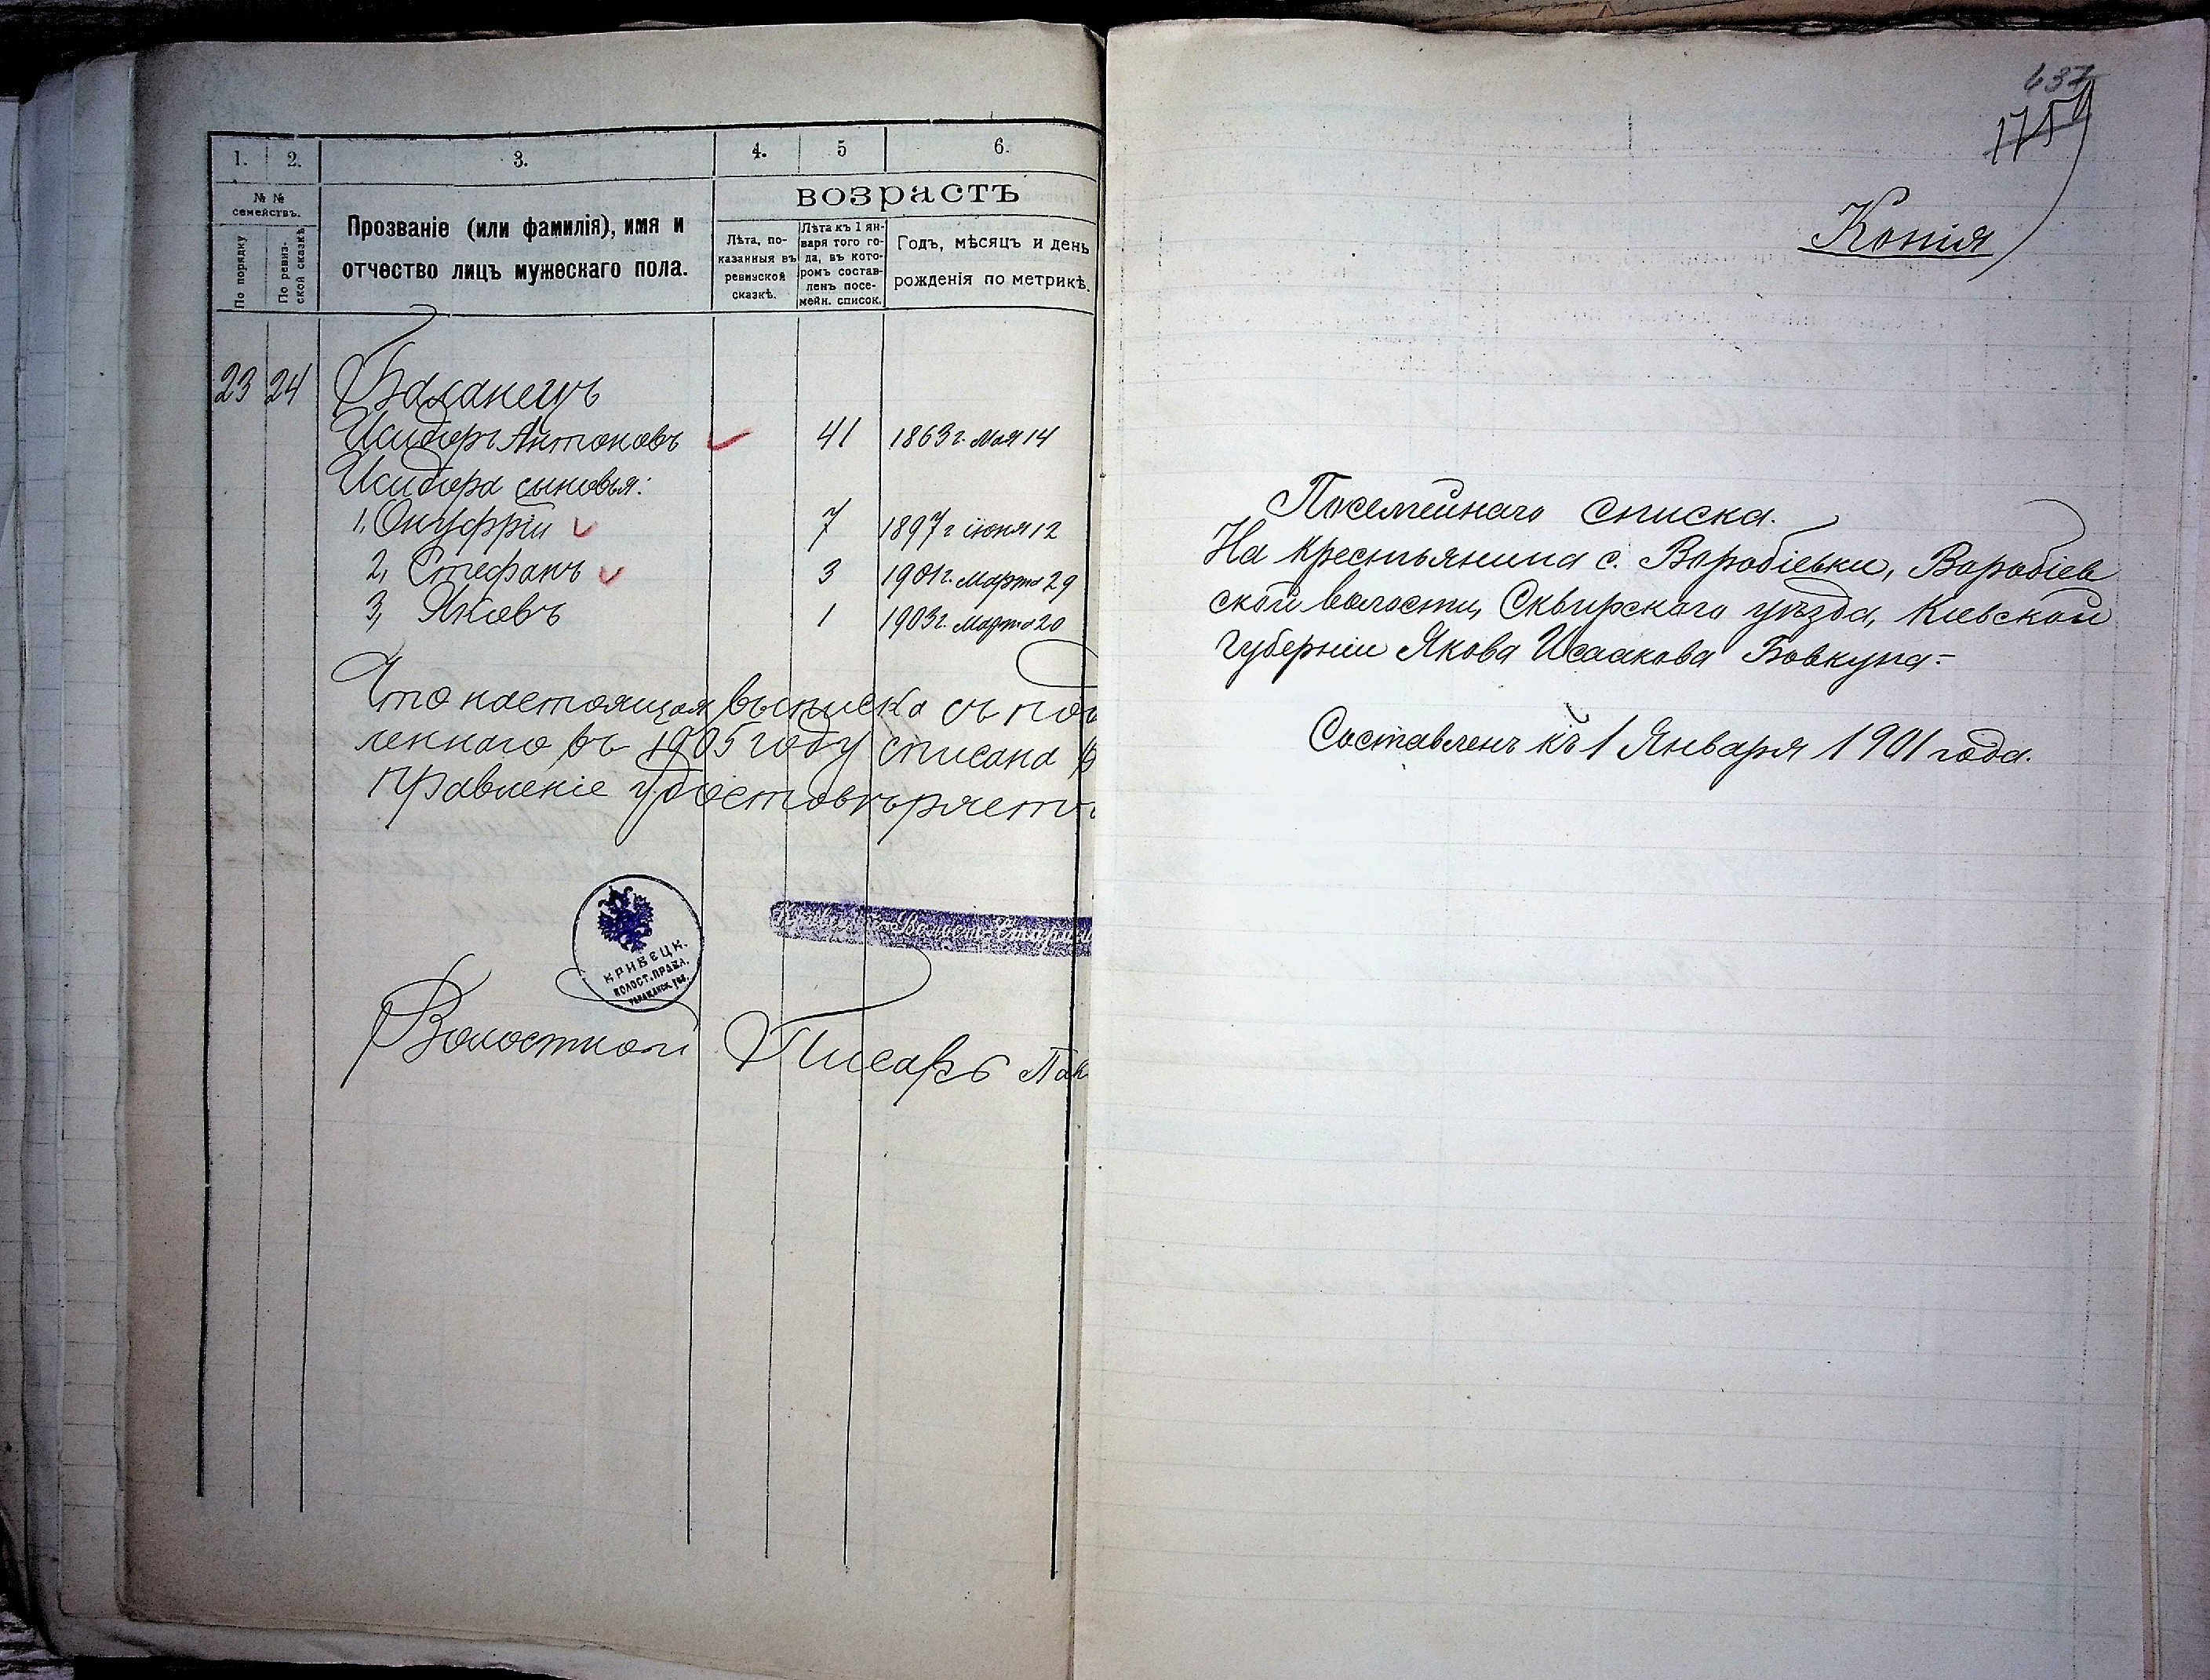 1.
2.
3.
4.
5
6.
№ №
семействъ.
По порядку
По ревиз-
ской сказкѣ
Прозваніе (или фамилія), имя и
отчество лицъ мужескаго пола.
возрастъ
Лѣта, по-
казанныя въ
ревизской
сказкѣ.
Лѣта къ 1 ян-
варя того го-
да, въ кото-
ромъ состав-
ленъ посе-
мейн. список.
Годъ, мѣсяцъ и день
рожденія по метрикѣ.
23 24 Баланецъ
Исидоръ Антоновъ 41 1863 г. Мая 14
Исидора сыновья:
1, Онуфрій 7 1897 г іюня 12
2, Стефанъ 3 1901 г. Марта 29
3, Яковъ 1 1903 г. Марта 20
Что настоящая выписка съ по
леннаго въ 1905 году списана
Правленіе удостовѣряетъ
КРИВЕЦК.
ВОЛОСТ. ПРАВЛ.
Волостной Писарь
637
175
Копія
Посемейнаго списка.
На крестьянина с. Воробіевки, Воробіев
ской волости, Сквирскаго уѣзда, Кіевской
губерніи Якова Исаакова Бовкуна=
Составленъ къ 1 Января 1901 года.